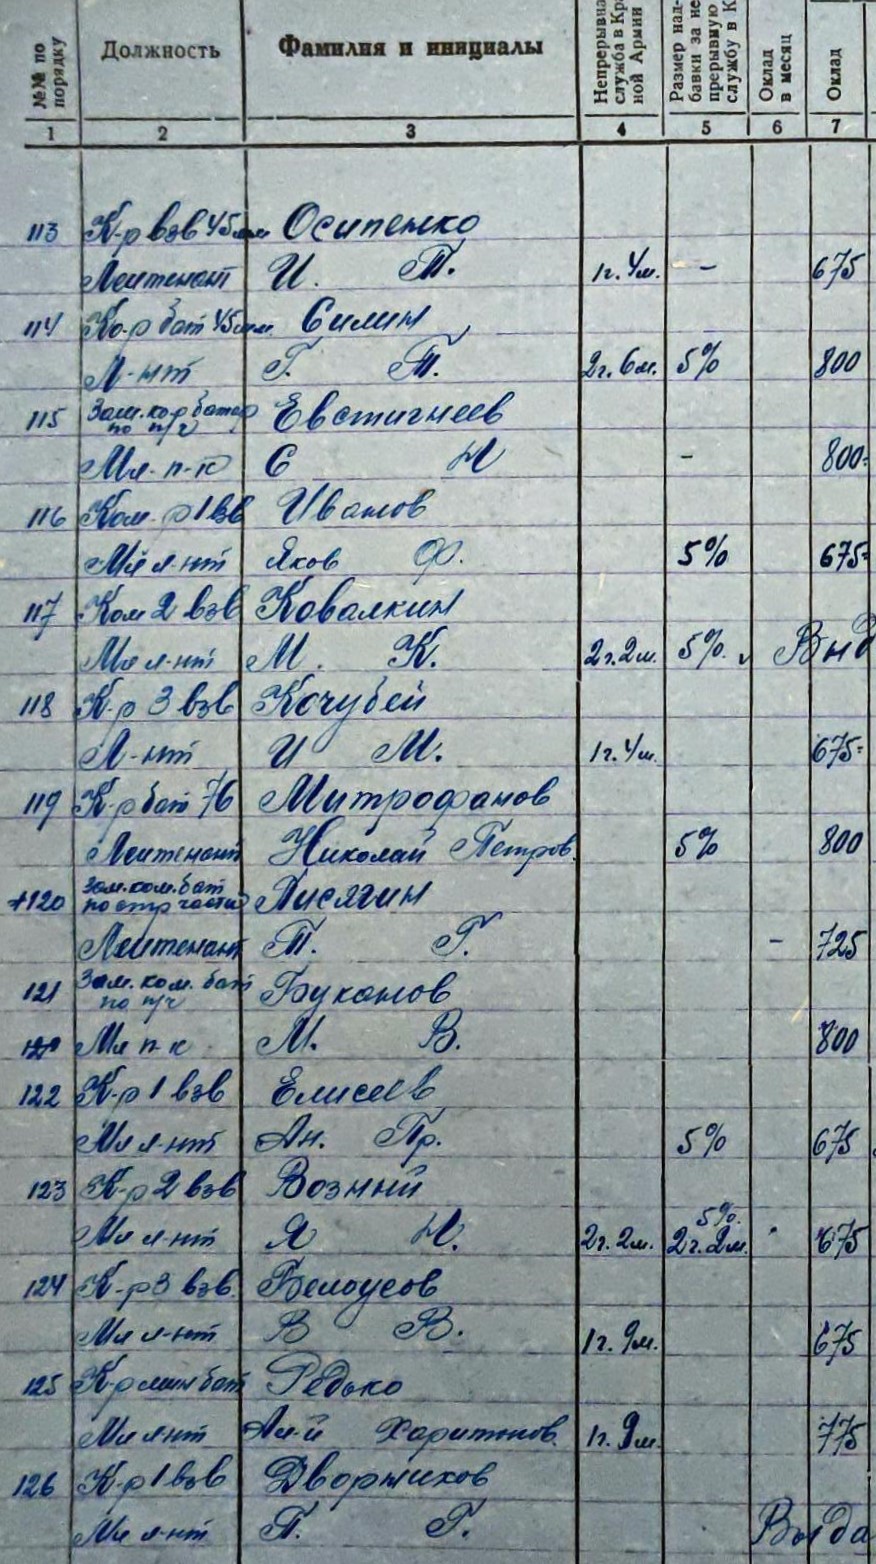 №№ по порядку Должность Фамилия и инициалы служба в ной Армии Размер над- бавки за прерывную службу в К Оклад в месяц Оклад
1 2 3 4 5 6 7
113 К-р взв 45мм Осипенко
Лейтенант И. Т. 1г. 4м. - 675
114 Ко-р бат 45мм. Силин
Л-нт Г. Т. 2г. 6м. 5% 800
115 Зам. кор батар по п/ч Евстигнеев
Мл. п-к С Н - 800=
116 Ком-р 1 взв Иванов
Мл л-нт Яков Ф. 5% 675=
117 Ком 2 взв Ковалкин
Мл л-нт М. К. 2г. 2м. 5%. v Выд
118 К-р 3 взв Кочубей
Л-нт И М. 1г. 4м. 675=
119 К-р бат 76 Митрофанов
Лейтенант Николай Петров. 5% 800
+120 Зам. ком. бат по стр части Лисягин
Лейтенант Т. Г. - 725
121 Зам. ком. бат по п/ч Буканов
Мл п-к М. В. 800
122 К-р 1 взв Елисеев
Мл л-нт Ан. Пр. 5% 675
123 К-р 2 взв Возный
5%.
Мл л-нт Я Н. 2г. 2м. 2г. 2м. 675
124 К-р 3 взв. Белоусов
Мл л-нт В В. 1г. 9м. 675
125 К-р мин бат Редько
Мл л-нт Ал-й Харитонов. 1г. 9м. 775
126 К-р 1 взв Дворников
Мл л-нт П. Г. Выда